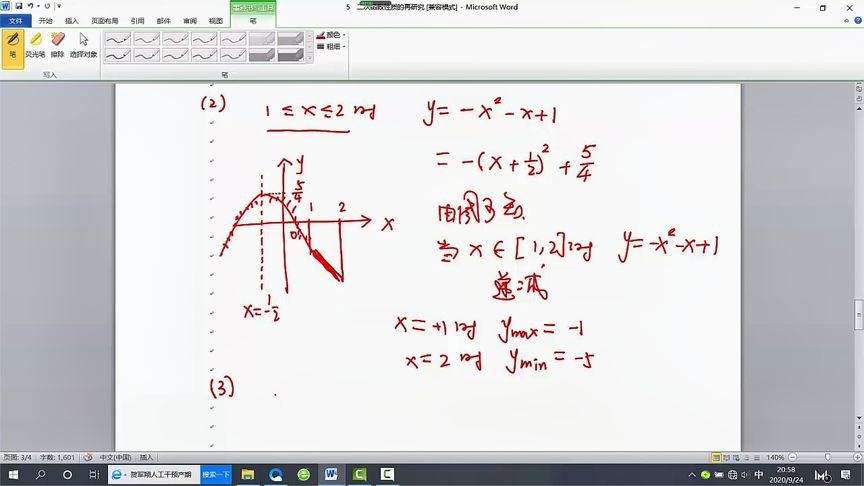 5 二次函数性质的再研究 [兼容模式] - Microsoft Word
文件 开始 插入 页面布局 引用 邮件 审阅 视图 笔
笔 荧光笔 擦除 选择对象 颜色 粗细
写入 笔
(2) 1 ≤ x ≤ 2 时 y = -x² - x + 1
= -(x + 1/2)² + 5/4
y 5/4 1 2 x 0
x = -1/2
由图可知
当 x ∈ [1,2] 时 y = -x² - x + 1
递减
x = +1 时 ymax = -1
x = 2 时 ymin = -5
(3)
页面: 3/4 字数: 1,601 中文(中国) 插入 140%
贺军翔人工干预产期 搜索一下 中 20:58
2020/9/24